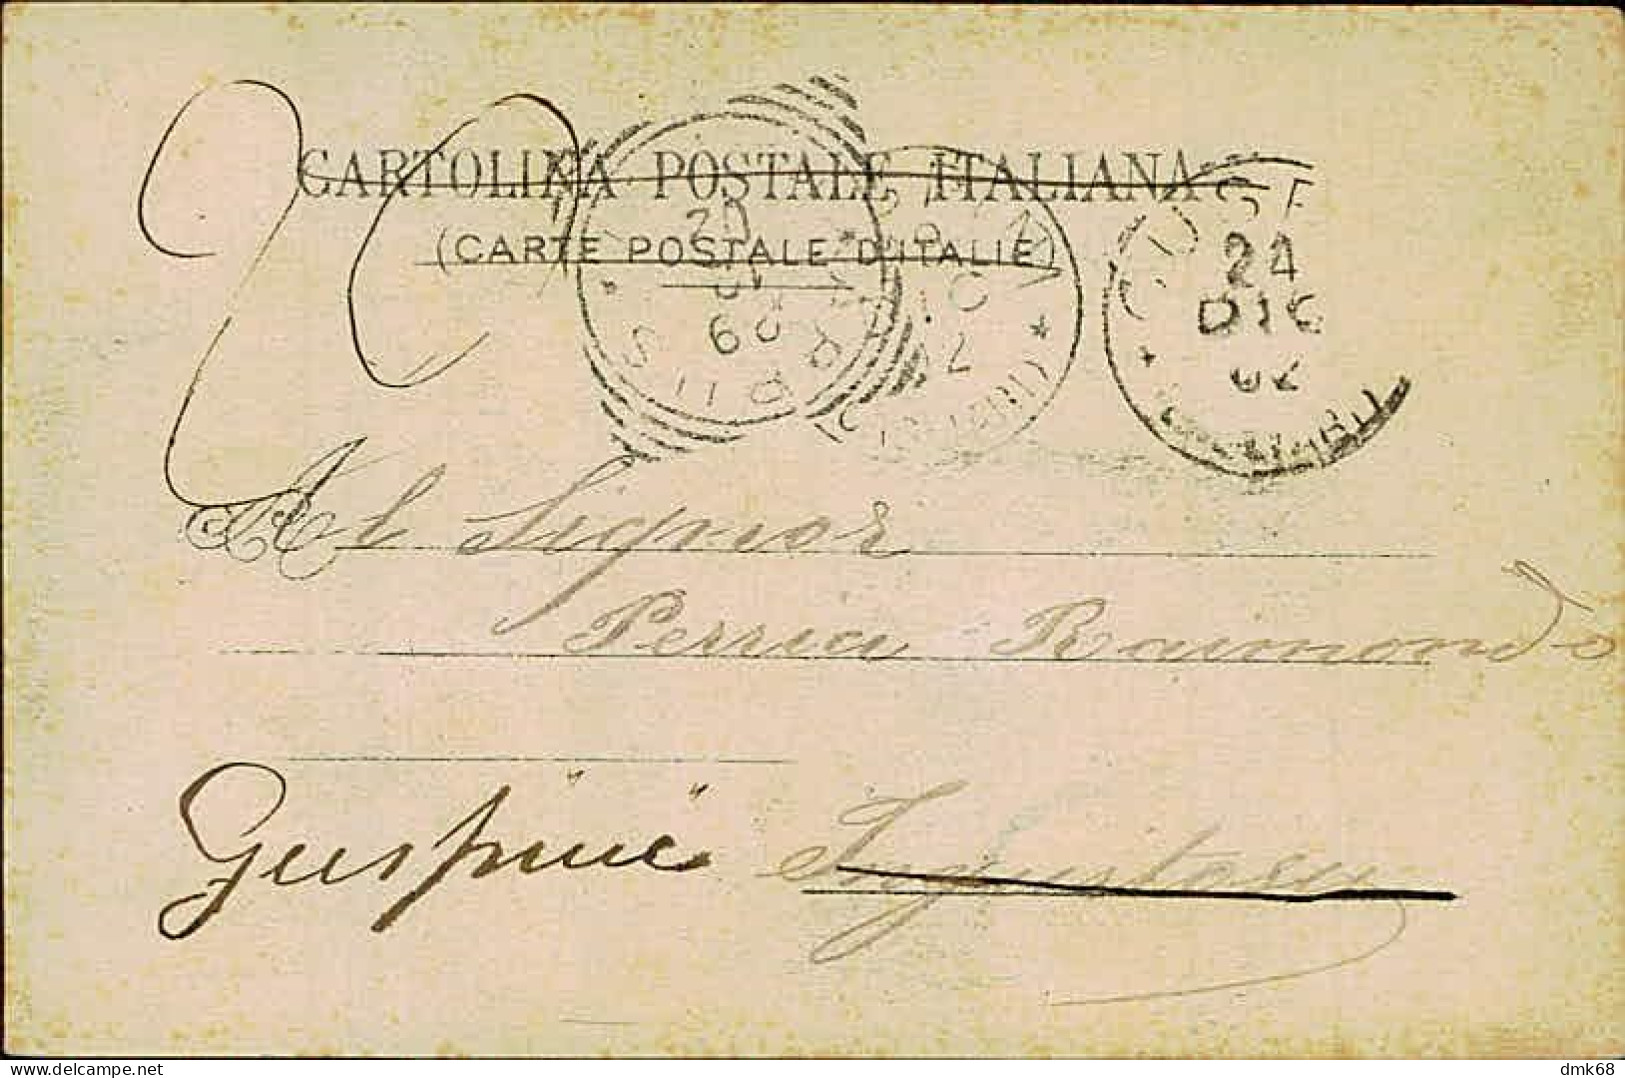 20
CARTOLINA POSTALE ITALIANA
(CARTE POSTALE D'ITALIE)
24
DIC
02
Al Signor
Perria Raimondo
Guspini Ingurtosu
dmk68